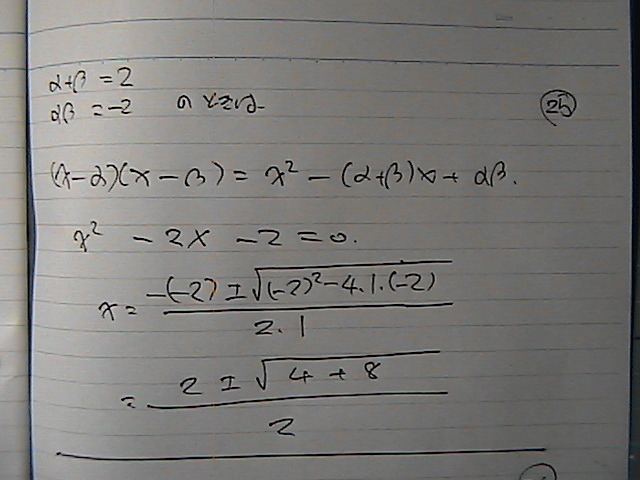 α+β = 2
αβ = -2
(25)
(x-α)(x-β) = x² - (α+β)x + αβ.
x² - 2x - 2 = 0.
x = -(-2) ± √(-2)² - 4.1.(-2)
2.1
= 2 ± √4 + 8
2